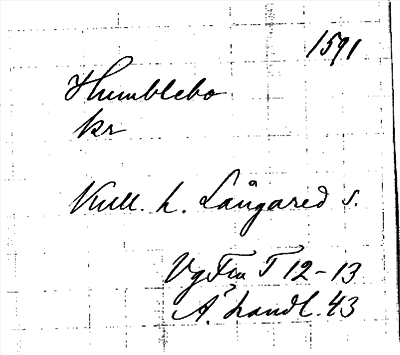 1591
Humblebo
kr
Kull. h. Långared s.
Vg Fra T 12-13
Ä. handl. 43